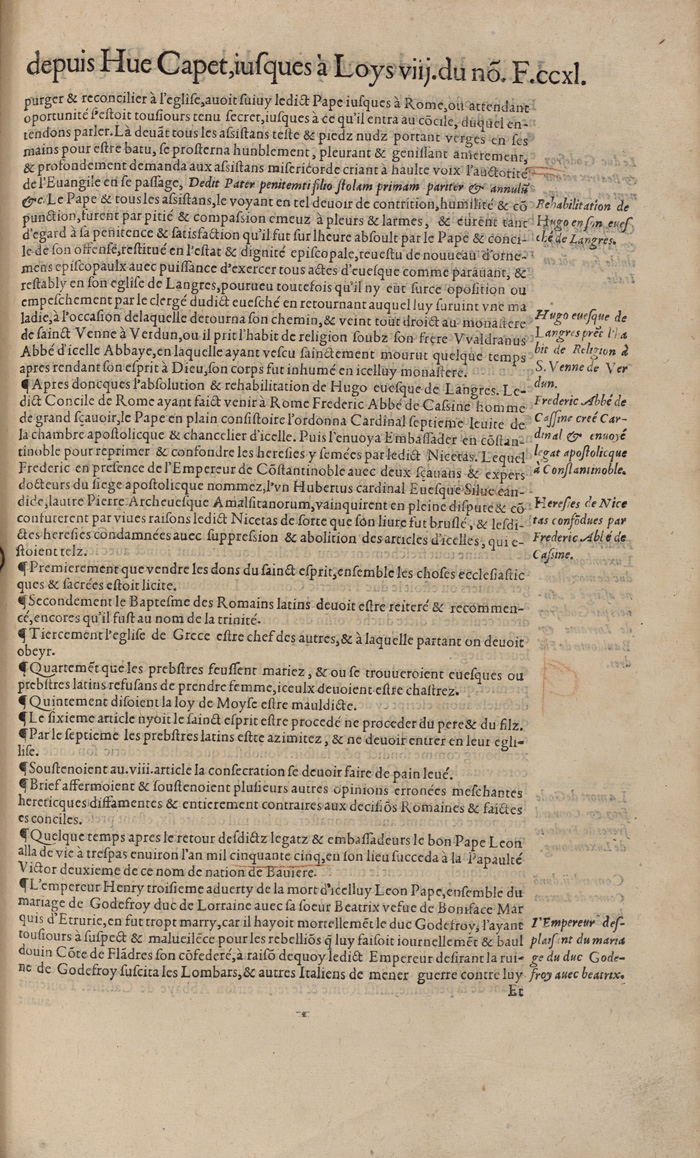 depuis Hue Capet,iusques à Loys viij.du nõ. F.ccxl.
purger & reconcilier à l'eglise,auoit suiuy ledict Pape iusques à Rome,ou attendant
oportunité s'estoit tousiours tenu secret,iusques à ce qu'il entra au cõcile, duquel en-
tendons parler. Là deuãt tous les assistans teste & piedz nudz portant verges en ses
mains pour estre batu, se prosterna humblement, pleurant & genissant amerement,
& profondement demanda aux assistans misericorde criant à haulte voix l'auctorité
de l'Euangile en se passage, Dedit Pater penitemti filio stolam primam pariter & annulũ
&c. Le Pape & tous les assistans,le voyant en tel deuoir de contrition,humilité & cõ
punction,furent par pitié & compassion emeuz à pleurs & larmes, & eurent tant
d'egard à sa penitence & satisfaction qu'il fut sur lheure absoult par le Pape & conci-
le de son offense,restitué en l'estat & dignité episcopale,reuestu de nouueau d'orne-
mens episcopaulx auec puissance d'exercer tous actes d'euesque comme parauant, &
restably en son eglise de Langres,pourueu toutefois qu'il ny eut surce oposition ou
empeschement par le clergé dudict euesché en retournant auquel luy suruint vne ma
ladie,à l'occasion delaquelle detourna son chemin,& veint tout droict au monastere
de sainct Venne à Verdun,ou il prit l'habit de religion soubz son frere Vvaldranus
Abbé d'icelle Abbaye,en laquelle ayant vescu sainctement mourut quelque temps
apres rendant son esprit à Dieu,son corps fut inhumé en icelluy monastere.
¶Apres doncques l'absolution & rehabilitation de Hugo euesque de Langres. Le-
dict Concile de Rome ayant faict venir à Rome Frederic Abbé de Cassine homme
de grand sçauoir,le Pape en plain consistoire l'ordonna Cardinal septieme leuite de
la chambre apostolicque & chancelier d'icelle. Puis l'enuoya Embassader en cõstan-
tinoble pour reprimer & confondre les heresies y semées par ledict Nicetas. Lequel
Frederic en presence de l'Empereur de Cõstantinoble auec deux sçauans & expers
docteurs du siege apostolicque nommez,l'vn Hubertus cardinal Euesque Siluc ean-
dide,lautre Pierre Archeuesque Amalsitanorum,vainquirent en pleine dispute & cõ
confuterent par viues raisons ledict Nicetas de sorte que son liure fut bruslé, & lesdi-
ctes heresies condamnées auec suppression & abolition des articles d'icelles, qui e-
stoient telz.
¶Premierement que vendre les dons du sainct esprit,ensemble les choses ecclesiastic
ques & sacrées estoit licite.
¶Secondement le Baptesme des Romains latins deuoit estre reiteré & recommen-
cé,encores qu'il fust au nom de la trinité.
¶Tiercement l'eglise de Grece estre chef des autres,& à laquelle partant on deuoit
obeyr.
¶Quartemēt que les prebstres feussent mariez, & ou se trouueroient euesques ou
prebstres latins refusans de prendre femme,iceulx deuoient estre chastrez.
¶Quintement disoient la loy de Moyse estre mauldicte.
¶Le sixieme article nyoit le sainct esprit estre procedé ne proceder du pere& du filz.
¶Par le septieme les prebstres latins estre azimitez, & ne deuoir entrer en leur egli-
lise.
¶Soustenoient au.viii.article la consecration se deuoir faire de pain leué.
¶Brief affermoient & soustenoient plusieurs autres opinions erronées meschantes
hereticques diffamentes & entierement contraires aux decisiõs Romaines & faictes
es conciles.
¶Quelque temps apres le retour desdictz legatz & embassadeurs le bon Pape Leon
alla de vie à trespas enuiron l'an mil cinquante cinq,en son lieu succeda à la Papaulté
Victor deuxieme de ce nom de nation de Bauiere.
¶L'empereur Henry troisieme aduerty de la mort d'icelluy Leon Pape,ensemble du
mariage de Godefroy duc de Lorraine auec sa soeur Beatrix vefue de Boniface Mar
quis d'Etrurie,en fut tropt marry,car il hayoit mortellemēt le duc Godefroy, l'ayant
tousiours à suspect & maluciléce pour les rebelliõs q̃ luy faisoit iournellemēt & baul
douin Cõte de Flãdres son cõfederé,à raisõ dequoy ledict Empereur desirant la rui-
ne de Godefroy suscita les Lombars,& autres Italiens de mener guerre contre luy
Et
Rehabilitation de
Hugo en son euef
ché de Langres.
Hugo euesque de
Langres prēt l'ha
bit de Religion à
S. Venne de Ver
dun.
Frederic Abbé de
Cassine creé Car-
dinal & enuoyé
legat apostolicque
à Constantinoble.
Heresies de Nice
tas confõdues par
Frederic Abbé de
Cassine.
l'Empereur des-
plaisant du maria
ge du duc Gode-
froy auec beatrix.